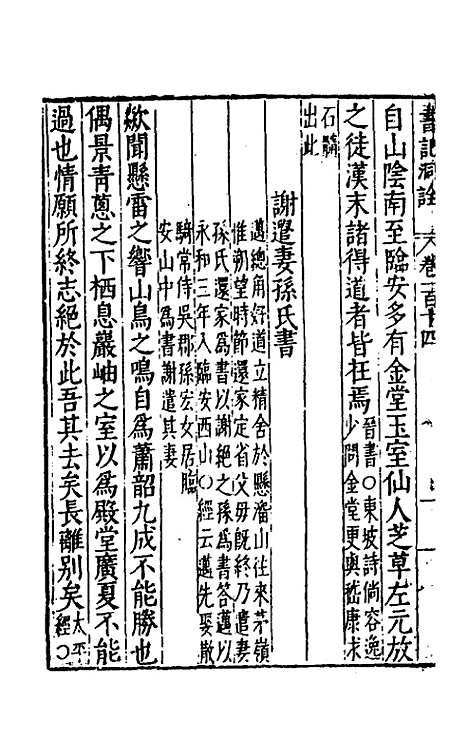 書記洞詮 卷一百十四
自山陰南至臨安多有金堂玉室仙人芝草左元放
之徒漢末諸得道者皆在焉晉書〇東坡詩倘容逸
少問金堂更與嵇康求
石髓
出此
謝遣妻孫氏書
邁總角好道立精舍於懸溜山往來茅嶺
惟朔望時節還家定省父母既終乃遣妻
孫氏還家為書以謝絕之孫為書答邁以
永和三年入臨安西山〇經云邁先娶散
騎常侍吳郡孫宏女居臨
安山中為書謝遣其妻
欻聞懸雷之響山鳥之鳴自為蕭韶九成不能勝也
偶景青蔥之下栖息巖岫之室以為殿堂廣夏不能
過也情願所終志絕於此吾其去矣長離別矣太平
經〇